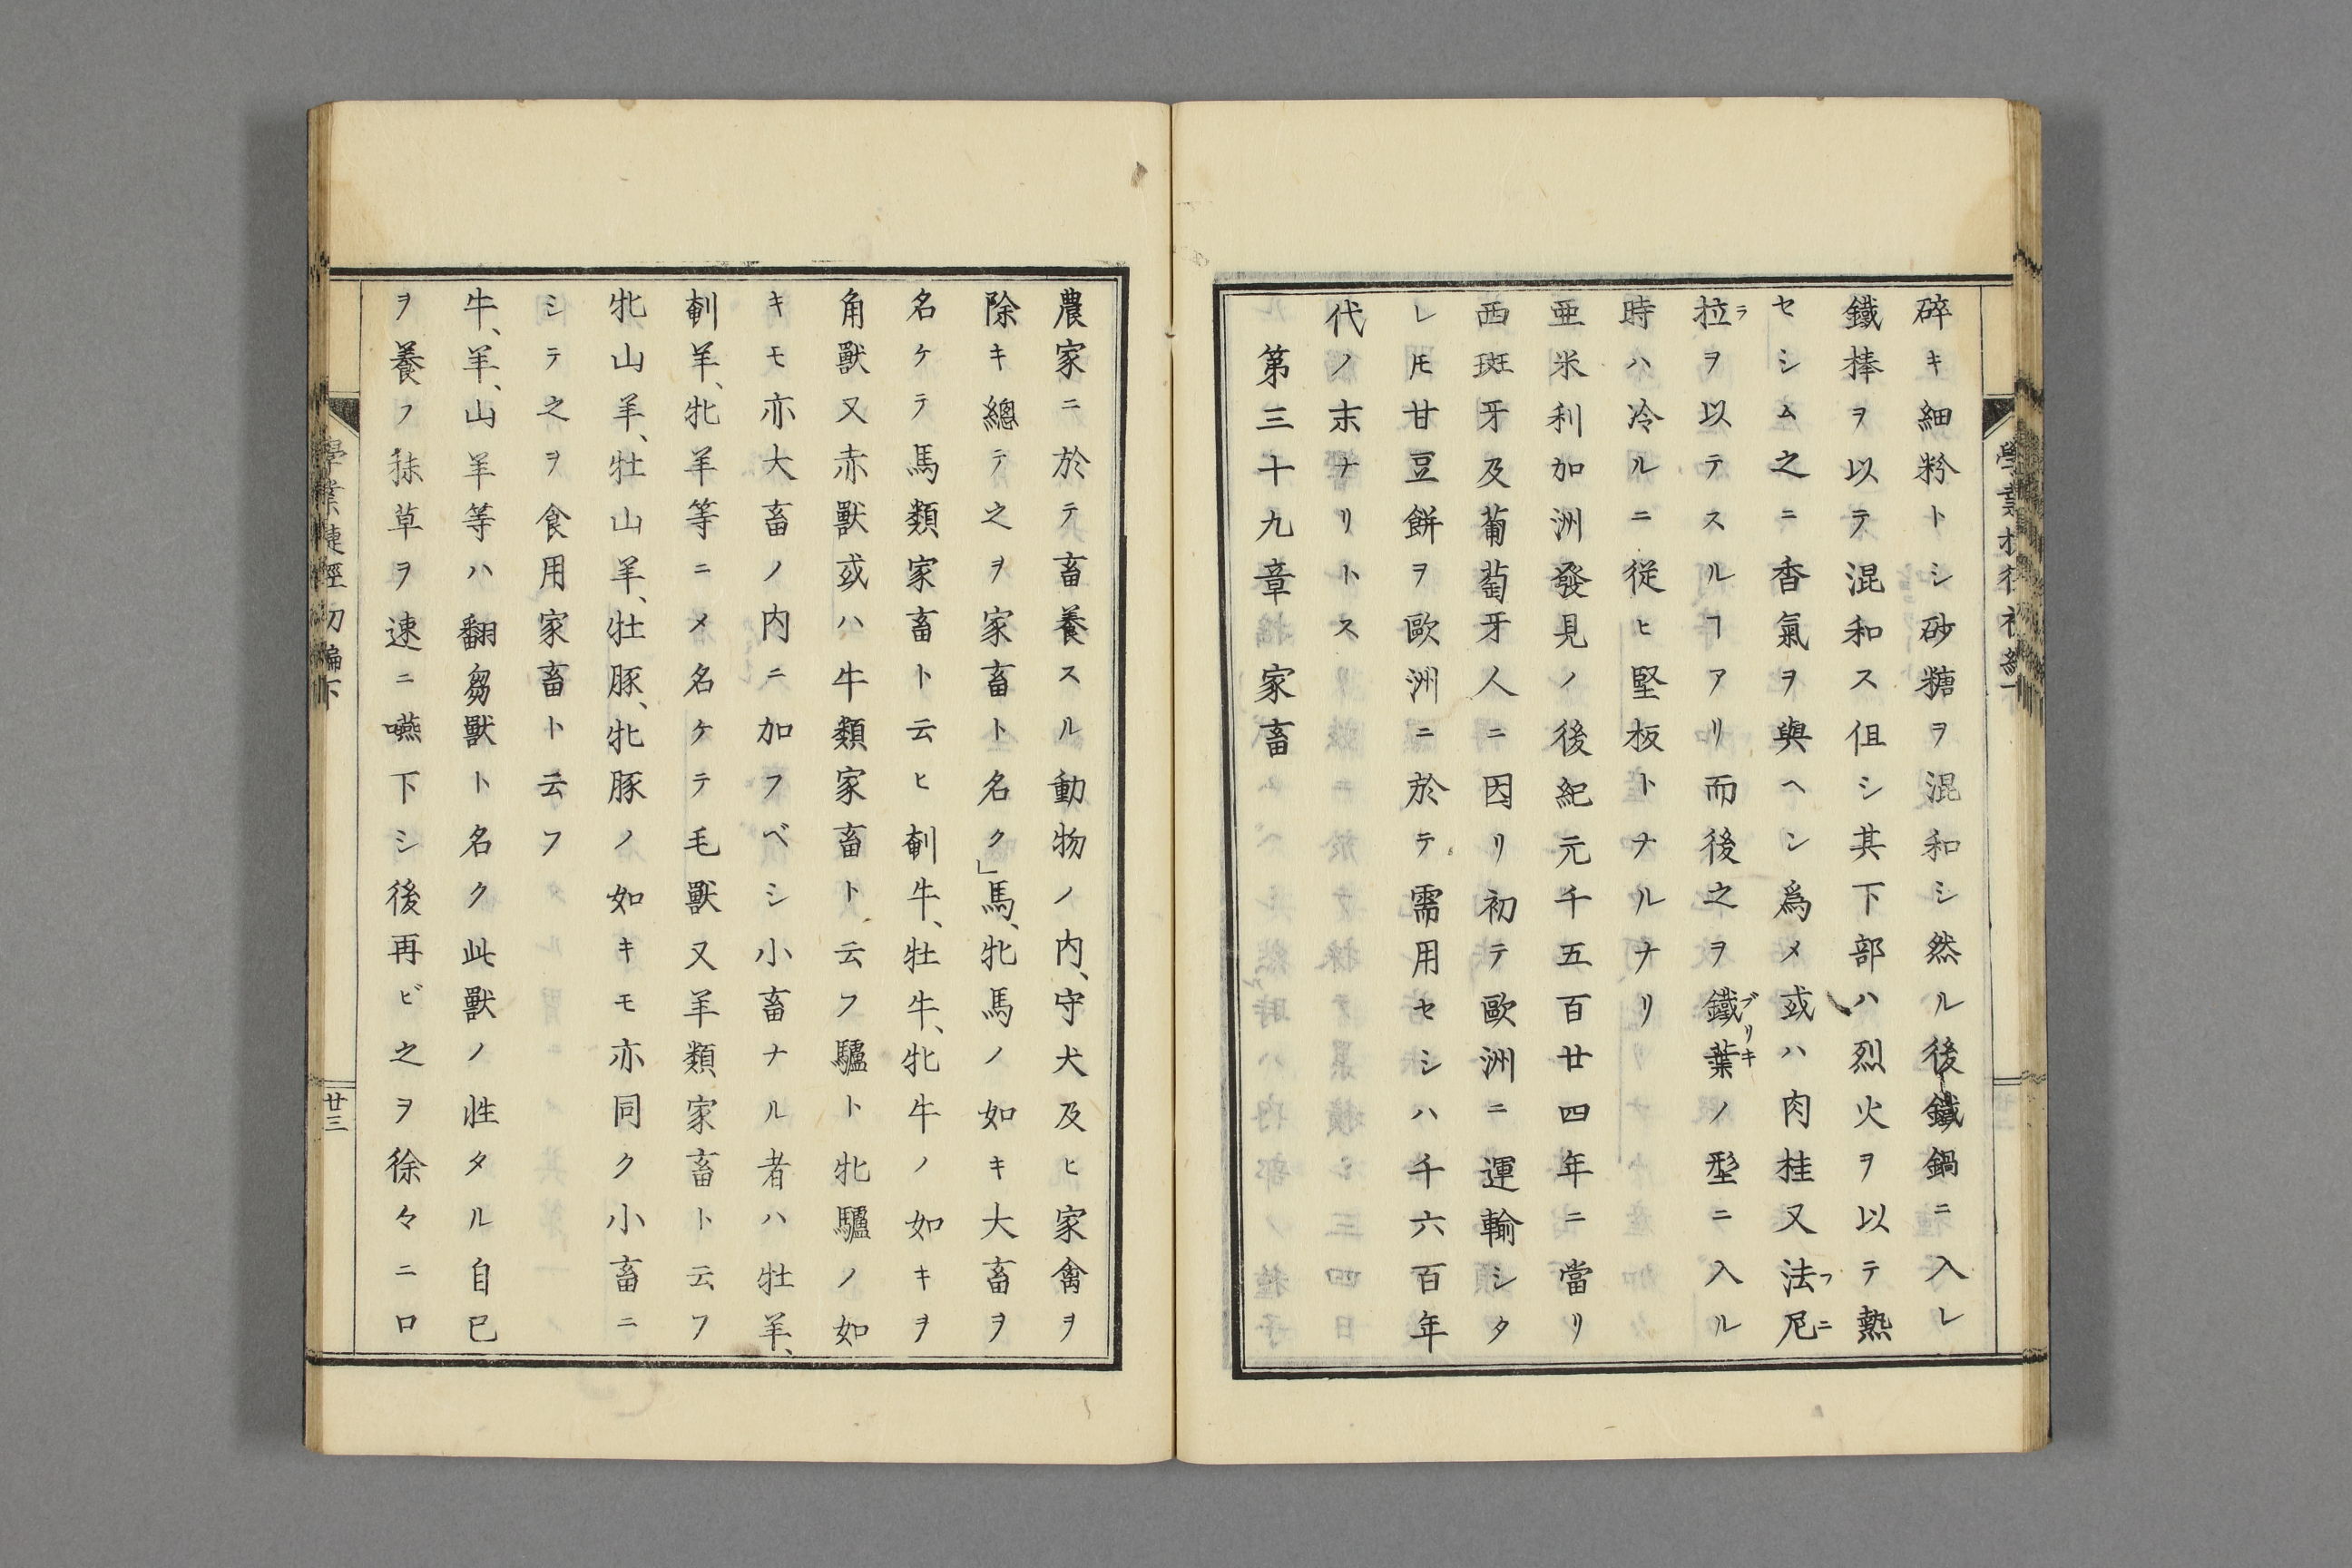 碎キ細粉トシ砂糖ヲ混和シ然ル後鐵鍋ニ入レ
鐵棒ヲ以テ混和ス伹シ其下部ハ烈火ヲ以テ熱
セシム之ニ香氣ヲ與ヘン爲メ或ハ肉桂又法尼
フニ
拉ヲ以テスルヿアリ而後之ヲ鐵葉ノ型ニ入ル
ラ
ブリキ
時ハ冷ルニ従ヒ堅板トナルナリ
亜米利加洲發見ノ後紀元千五百廿四年ニ當リ
西斑牙及葡萄牙人ニ因リ初テ歐洲ニ運輸シタ
レ𪜈甘豆餅ヲ歐洲ニ於テ需用セシハ千六百年
代ノ末ナリトス
第三十九章家畜
農家ニ於テ畜養スル動物ノ内、守犬及ヒ家禽ヲ
除キ總テ之ヲ家畜ト名ク」馬、牝馬ノ如キ大畜ヲ
名ケテ馬類家畜ト云ヒ剦牛、牡牛、牝牛ノ如キヲ
角獸又赤獸或ハ牛類家畜ト云フ驢ト牝驢ノ如
キモ亦大畜ノ内ニ加フベシ小畜ナル者ハ牡羊、
剦羊、牝羊等ニメ名ケテ毛獸又羊類家畜ト云フ
牝山羊、牡山羊、牡豚、牝豚ノ如キモ亦同ク小畜ニ
シテ之ヲ食用家畜ト云フ
牛、羊、山羊等ハ翻芻獸ト名ク此獸ノ性タル自已
ヲ養フ秣草ヲ速ニ嚥下シ後再ビ之ヲ徐々ニ口
學業捷徑初編下
廿三